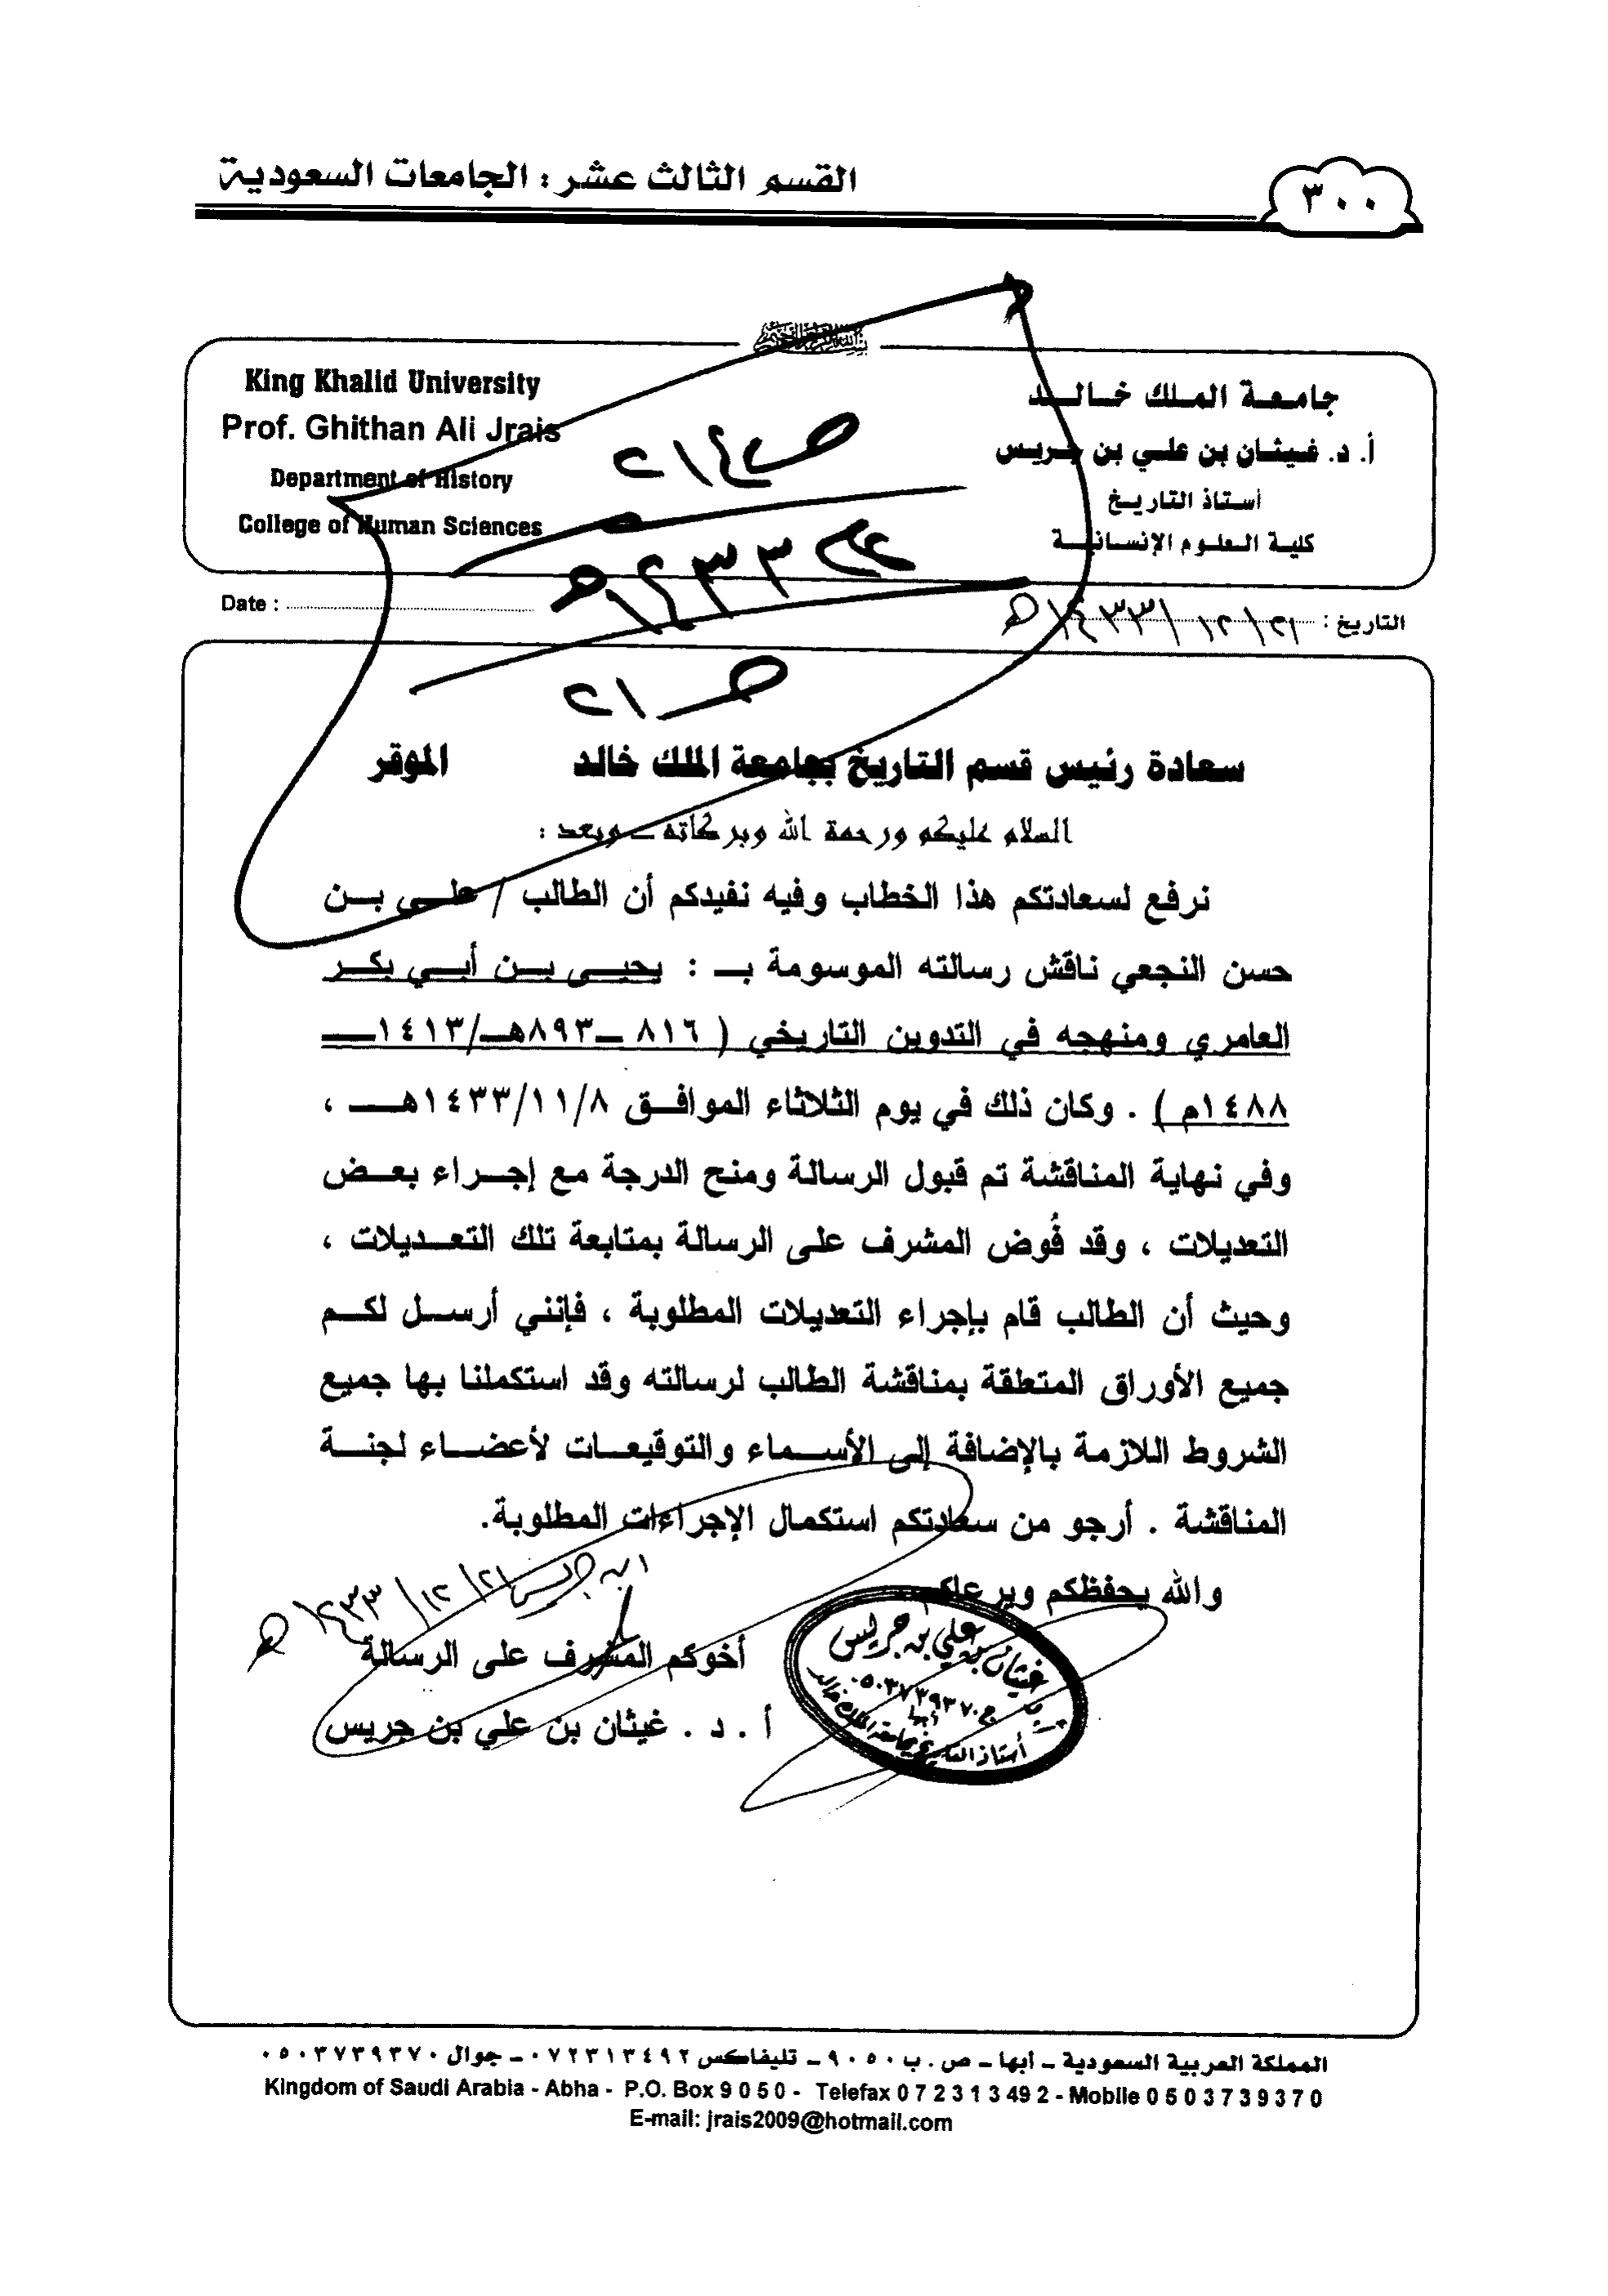 القسم الثالث عشر : الجامعات السعودية
٣٠٠
جامعة الملك خالد
أ. د. غيثان بن علي بن جريس
أستاذ التاريخ
كلية العلوم الإنسانية
King Khalid University
Prof. Ghithan Ali Jrais
Department of History
College of Human Sciences
التاريخ : ٢١/١٢/١٤٣٣هـ
Date :
سعادة رئيس قسم التاريخ بجامعة الملك خالد الموقر
السلام عليكم ورحمة الله وبركاته ـ وبعد :
نرفع لسعادتكم هذا الخطاب وفيه نفيدكم أن الطالب / علي بن
حسن النجعي ناقش رسالته الموسومة بـ : يحيى بن أبي بكر
العامري ومنهجه في التدوين التاريخي ( ٨١٦ ـ ٨٩٣هـ/١٤١٣ـ
١٤٨٨م ) . وكان ذلك في يوم الثلاثاء الموافق ١٤٣٣/١١/٨هـ ،
وفي نهاية المناقشة تم قبول الرسالة ومنح الدرجة مع إجراء بعض
التعديلات ، وقد فُوض المشرف على الرسالة بمتابعة تلك التعديلات ،
وحيث أن الطالب قام بإجراء التعديلات المطلوبة ، فإنني أرسل لكم
جميع الأوراق المتعلقة بمناقشة الطالب لرسالته وقد استكملنا بها جميع
الشروط اللازمة بالإضافة إلى الأسماء والتوقيعات لأعضاء لجنة
المناقشة . أرجو من سعادتكم استكمال الإجراءات المطلوبة.
والله يحفظكم ويرعاكم
ابن جريس ٢١/١٢/١٤٣٣هـ
أخوكم المشرف على الرسالة
أ . د . غيثان بن علي بن جريس
غيثان بن علي بن جريس
ج ٠٥٠٣٧٣٩٣٧٠
أبها
أستاذ التاريخ بجامعة الملك خالد
المملكة العربية السعودية ـ أبها ـ ص . ب ٩٠٥٠ ـ تليفاكس ٠٧٢٣١٣٤٩٢ ـ جوال ٠٥٠٣٧٣٩٣٧٠
Kingdom of Saudi Arabia - Abha - P.O. Box 9 0 5 0 - Telefax 0 7 2 3 1 3 4 9 2 - Mobile 0 5 0 3 7 3 9 3 7 0
E-mail: jrais2009@hotmail.com